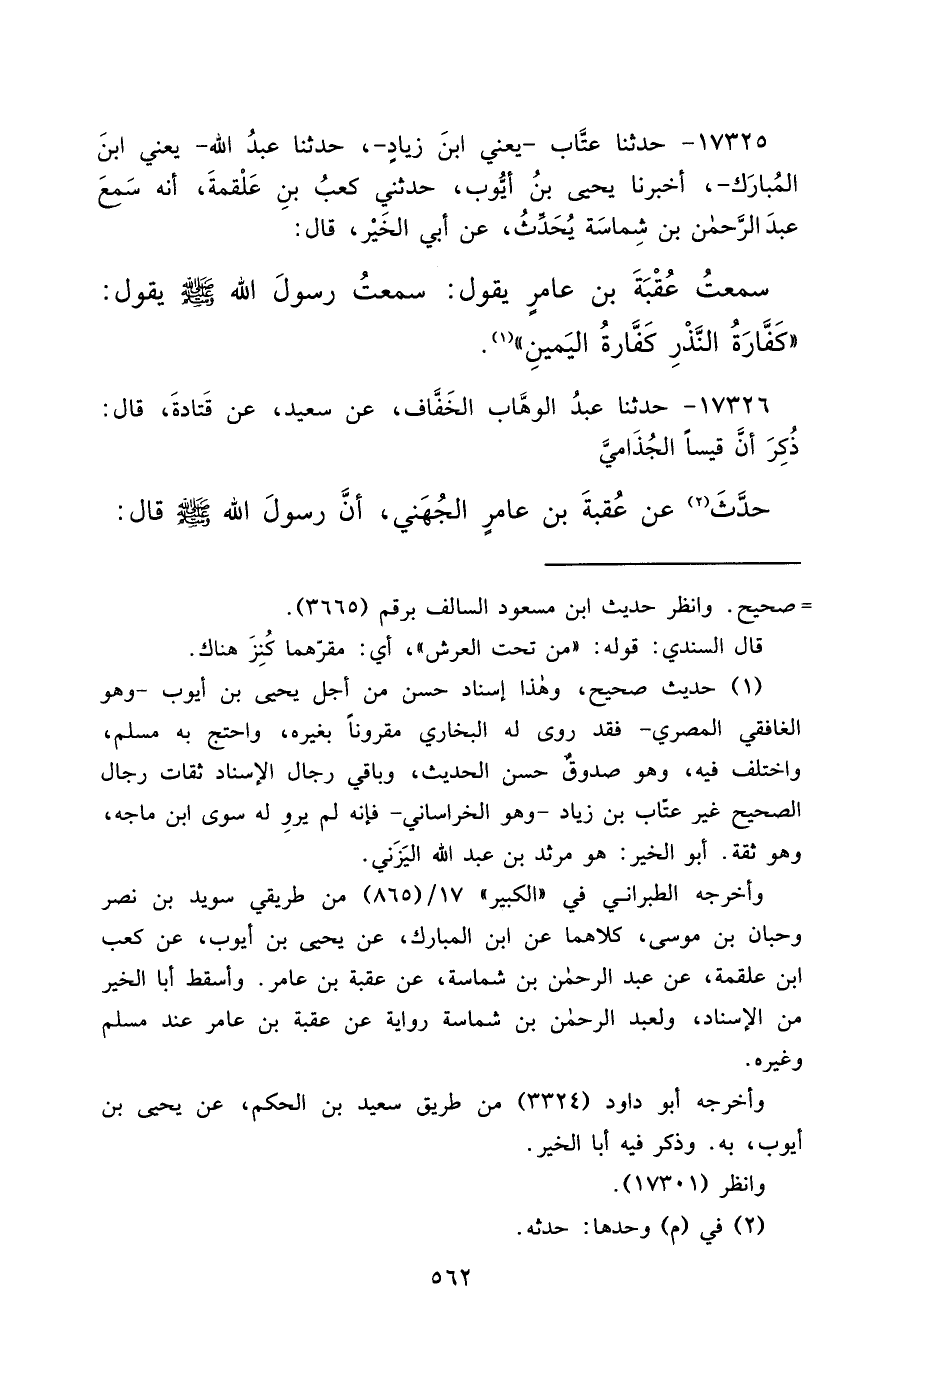 ١٧٣٢٥- حدثنا عتَّاب -يعني ابنَ زيادٍ-، حدثنا عبدُ الله- يعني ابنَ
المُبارَك-، أخبرنا يحيى بنُ أيُّوب، حدثني كعبُ بنِ عَلْقمةَ، أنه سَمِعَ
عبدَ الرَّحمٰن بن شِماسَة يُحَدِّثُ، عن أبي الخَيْر، قال:
سمعتُ عُقْبَةَ بن عامرٍ يقول: سمعتُ رسولَ الله ﷺ يقول:
«كَفَّارَةُ النَّذْرِ كَفَّارةُ اليَمينِ»(١).
١٧٣٢٦- حدثنا عبدُ الوهَّاب الخَفَّاف، عن سعيد، عن قَتادةَ، قال:
ذُكِرَ أنَّ قيساً الجُذَاميَّ
حدَّثَ(٢) عن عُقبةَ بن عامرٍ الجُهَني، أنَّ رسولَ الله ﷺ قال:
= صحيح. وانظر حديث ابن مسعود السالف برقم (٣٦٦٥).
قال السندي: قوله: «من تحت العرش»، أي: مقرّهما كُنِزَ هناك.
(١) حديث صحيح، وهٰذا إسناد حسن من أجل يحيى بن أيوب -وهو
الغافقي المصري- فقد روى له البخاري مقروناً بغيره، واحتج به مسلم،
واختلف فيه، وهو صدوقٌ حسن الحديث، وباقي رجال الإسناد ثقات رجال
الصحيح غير عتّاب بن زياد -وهو الخراساني- فإنه لم يروِ له سوى ابن ماجه،
وهو ثقة. أبو الخير: هو مرثد بن عبد الله اليَزَني.
وأخرجه الطبراني في «الكبير» ١٧/(٨٦٥) من طريقي سويد بن نصر
وحبان بن موسى، كلاهما عن ابن المبارك، عن يحيى بن أيوب، عن كعب
ابن علقمة، عن عبد الرحمٰن بن شماسة، عن عقبة بن عامر. وأسقط أبا الخير
من الإسناد، ولعبد الرحمٰن بن شماسة رواية عن عقبة بن عامر عند مسلم
وغيره.
وأخرجه أبو داود (٣٣٢٤) من طريق سعيد بن الحكم، عن يحيى بن
أيوب، به. وذكر فيه أبا الخير.
وانظر (١٧٣٠١).
(٢) في (م) وحدها: حدثه.
٥٦٢